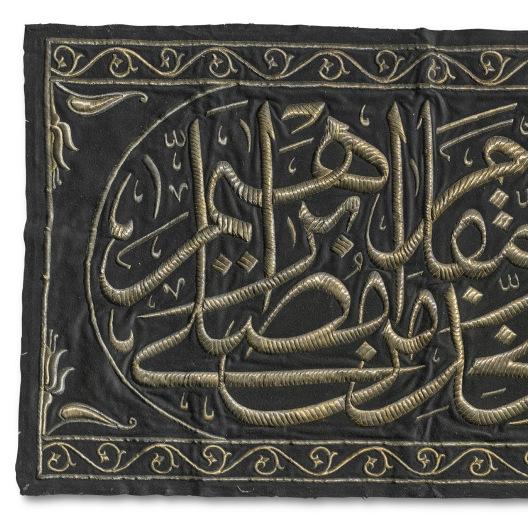 من مقام إبرهيم مصلى